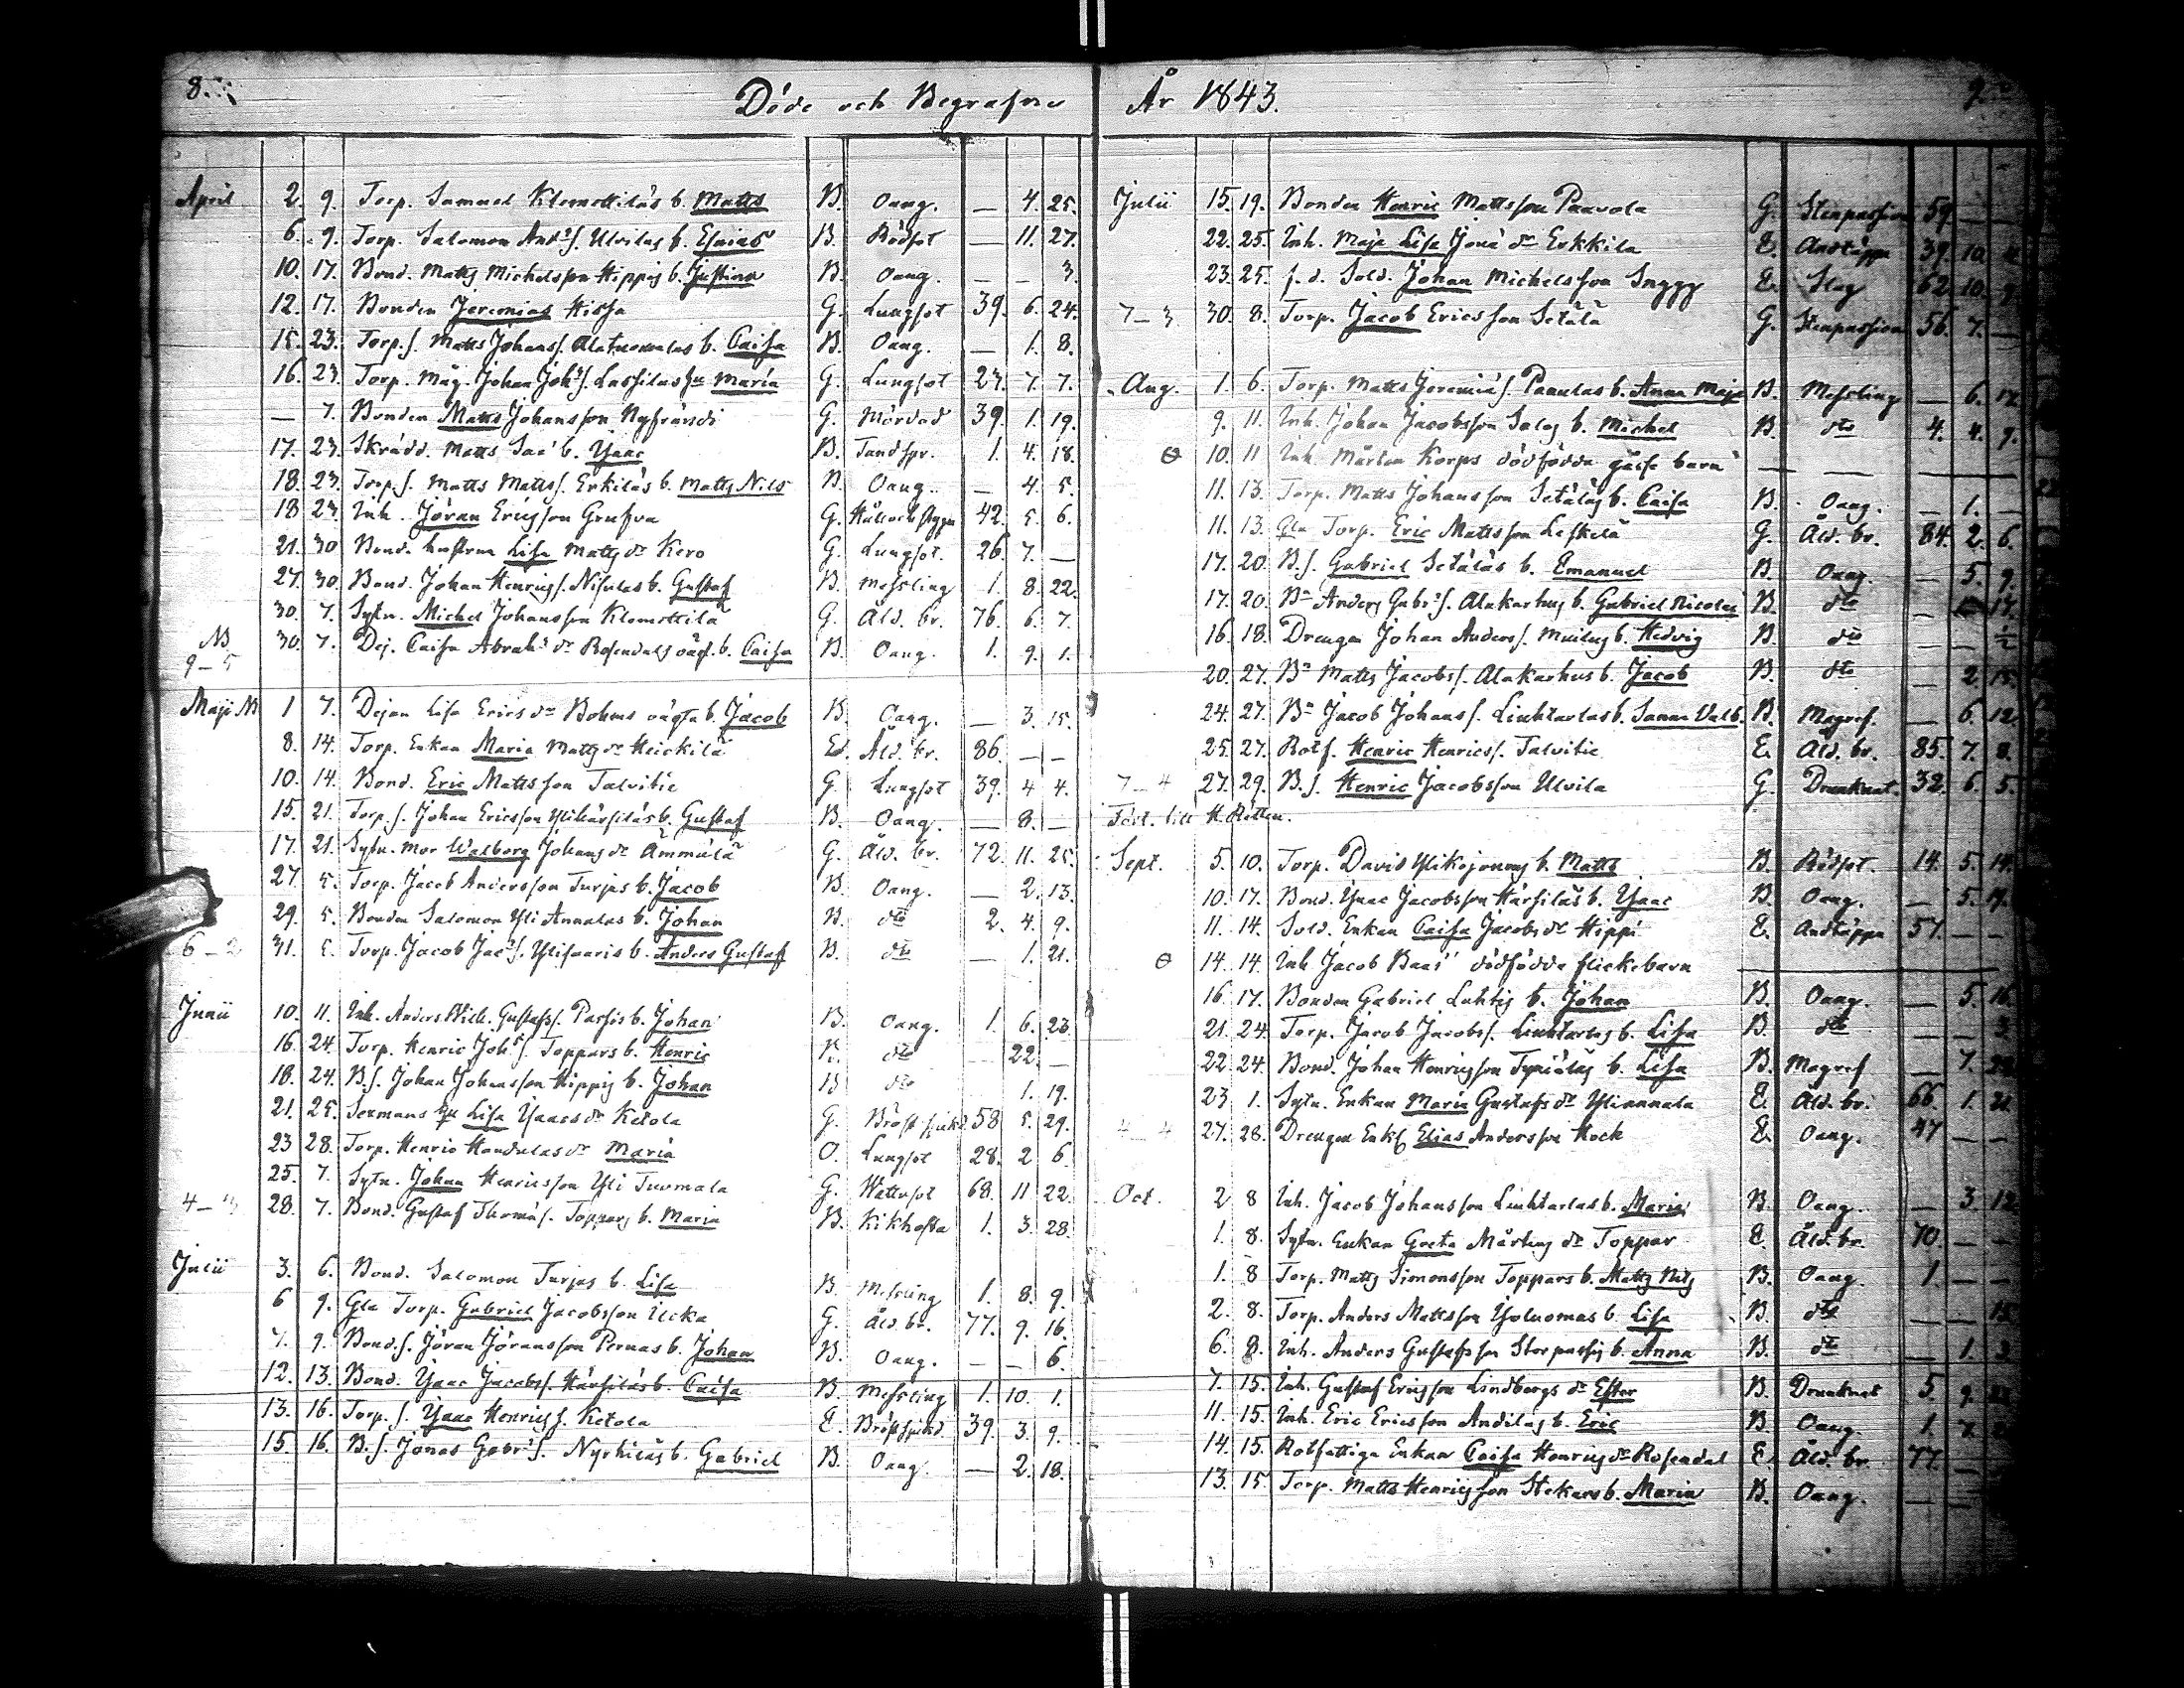 8.
Döde och Begrafne
April 2. 9. Torp. Samuel Klemettiläs b. Matts B. Oang. — 4. 25.
6. 9. Torp. Salomon And:s s. Ulvilas b. Esaias B. Rödsot — 11. 27.
10. 17. Bond. Matts Michelsson Hippis b. Justina B. Oang. — — 3.
12. 17. Bonden Jeremias Hissa G. Lungsot 39. 6. 24.
15. 23. Torp.s. Matts Johans s. Alatuomalas b. Caisa B. Oang. — 1. 8.
16. 23. Torp. Måg. Johan Joh:s s. Lassilas hu Maria G. Lungsot 27. 7. 7.
— 7. Bonden Matts Johansson Nyfrändi G. Mördad 39. 1. 19.
17. 23. Skrädd. Matts Saa' b. Ysaac B. Tandspr. 1. 4. 18.
18. 23. Torp.s. Matts Matts s. Erkiläs b. Matts Nils B. Oang. — 4. 5.
18 23. Inh. Jöran Ericsson Grufva G. Håll och Stygn 42. 5. 6.
21. 30 Bond. hustrun Lisa Matts dr Kero G. Lungsot. 26. 7. —
27. 30. Bond. Johan Henrics s. Nisulas b. Gustaf B. Messling 1. 8. 22.
30. 7. Sytn. Michel Johansson Klemettilä G. Åld. br. 76. 6. 7.
NB 30. 7. Dej. Caisa Abrah:s dr Rosendals oägt. b. Caisa B. Oang. 1. 9. 1.
9 – 5
Maji NB 1 7. Dejan Lisa Erics dr Bohms oägta b. Jacob B. Oang. — 3. 15.
8. 14. Torp. Enkan Maria Matts dr Heickilä E. Åld. br. 86. — —
10. 14. Bond. Eric Mattsson Talvitie G. Lungsot 39. 4 4.
15. 21. Torp.s. Johan Ericsson Ylihärsiläs b. Gustaf B. Oang. — 8. —
17. 21. Sytn. mor Walborg Johans dr Ämmälä G. Åld. br. 72. 11. 25.
27. 5. Torp. Jacob Andersson Turjas b. Jacob B. Oang. — 2. 13.
29. 5. Bonden Salomon Yli Annalas b. Johan B. dto 2. 4. 9.
6 – 2 31. 5. Torp. Jacob Jac:s s. Ylisaaris b. Anders Gustaf B. dto — 1. 21.
Junii 10. 11. Inh. Anders Wilh. Gustafs s. Passis b. Johan B. Oang. 1. 6. 23.
16. 24. Torp. Henric Joh:s s. Toppars b. Henric B. dto — 22. —
18. 24. B.s. Johan Johansson Hippis b. Johan B dto 1. 19.
21. 25. Sexmans hu Lisa Ysaacs dr Ketola G. Bröstsjukd 58 5. 29.
23 28. Torp. Henric Handulas dr Maria O. Lungsot 28. 2 6.
25. 7. Sytn. Johan Henricsson Yli Tuomala G. Wattusot 68. 11 22.
28. 7. Bond. Gustaf Thomas s. Toppars b. Maria B. Kikhosta 1. 3. 28.
Julii 3. 6. Bond. Salomon Turjas b. Lisa B. Messling 1. 8. 9.
6 9. Gla Torp. Gabriel Jacobsson Ucka G. Åld. br. 77. 9. 16.
7. 9. Bond.s. Jöran Jöransson Pernas b. Johan B. Oang. — — 6.
12. 13. Bond. Ysaac Jacobs s. Härsiläs b. Caisa B. Messling 1. 10. 1.
13. 16. Torp.s. Ysaac Henrics s. Ketola E Bröstsjukd. 39. 3. 9.
15. 16. B.s. Jonas Gabr:s s. Nyrhiäs b. Gabriel B. Oang. — 2. 18.
År 1843. 9.
Julii 15. 19. Bonden Henric Mattsson Paavola G. Stenpassion 59. — —
22. 25. Inh. Maja Lisa Jona dr Erkkila E. Andtäppa 39. 10.
23. 25. f.d. Sold. Johan Michelsson Snygg E. Slag 62. 10. 9.
7 – 3 30. 8. Torp. Jacob Ericsson Setälä G. Stenpassion 56. 7. —
Aug. 1. 6. Torp. Matts Jeremias s. Paavulas b. Anna Maja B. Messling — 6. 17.
9. 11. Inh. Johan Jacobsson Salos b. Michel B. dto 4. 4. 9.
10. 11 Inh. Mårten Korps dödfödda gåsse barn — — —
11. 13. Torp. Matts Johansson Setäläs b. Caisa B. Oang. — 1. —
11. 13. Gla Torp. Eric Mattsson Leskelä G. Åld. br. 84. 2. 6.
17. 20. B.s. Gabriel Setäläs b. Emanuel B. Oang. — 5. 9.
17. 20. Bn Anders Gabr:s s. Alakarhus b. Gabriel Nicolai B. dto — 17.
16. 18. Drengen Johan Anders s. Muilus b. Hedvig B. dto — — ½
20. 27. Bn Matts Jacobs s. Alakarhus b. Jacob B. dto — 2. 15.
24. 27. Bn Jacob Johans s. Liuhtarlas b. Sanna Valb. B. Magref. — 6. 12.
25. 27. Rotf. Henric Henrics s. Talvitie E. Åld. br. 85. 7. 8.
7 – 4 27. 29. B.s. Henric Jacobsson Ulvila G. Drunknat. 32. 6. 5.
Förd. till H. Rätten.
Sept. 5. 10. Torp. David Ylikojonens b. Matts B. Rödsot. 14. 5. 14.
10. 17. Bond. Ysaac Jacobsson Härsiläs b. Ysaac B. Oang. — 5. 19.
11. 14. Sold. Enkan Caisa Jacobs dr Hippi E. Andtäppa 57. — —
14. 14. Inh Jacob Baas' dödfödda flickebarn
16. 17. Bonden Gabriel Luhtis b. Johan B. Oang. — 5. 16.
21. 24. Torp. Jacob Jacobs s. Liuhtarlas b. Lisa B. dto — — 3.
22. 24. Bond. Johan Henricsson Tyniäläs b. Lisa B. Magref — 7.
23 1. Sytn. Enkan Maria Gustafs dr Yliannala E. Åld. br. 66. 1. 21
4 – 4 27. 28. Drengen Enkl. Elias Andersson Hock E. Oang. 47 — —
Oct. 2 8 Inh. Jacob Johansson Liuhtarlas b. Maria B. Oang. — 3. 12
1. 8. Sytn. Enkan Greta Mårtens dr Toppar E. Åld. br. 70. — —
1. 8 Torp. Matts Simonsson Toppars b. Matts Nils B. Oang. 1. — —
2. 8. Torp. Anders Mattsson Ysoluomas b. Lisa B. dto — — 15.
6. 8. Inh. Anders Gustafsson Storpassis b. Anna B. dto — 1. 3.
7. 15. Inh. Gustaf Ericsson Lindbergs dr Ester B. Drunknat 5. 9.
11. 15. Inh. Eric Ericsson Andilas b. Eric B. Oang. 1. 7.
14. 15. Rotfattiga Enkan Caisa Henrics dr Rosendal E. Åld. br. 77. —
13. 15. Torp. Matts Henricsson Stekars b. Maria B. Oang. — —